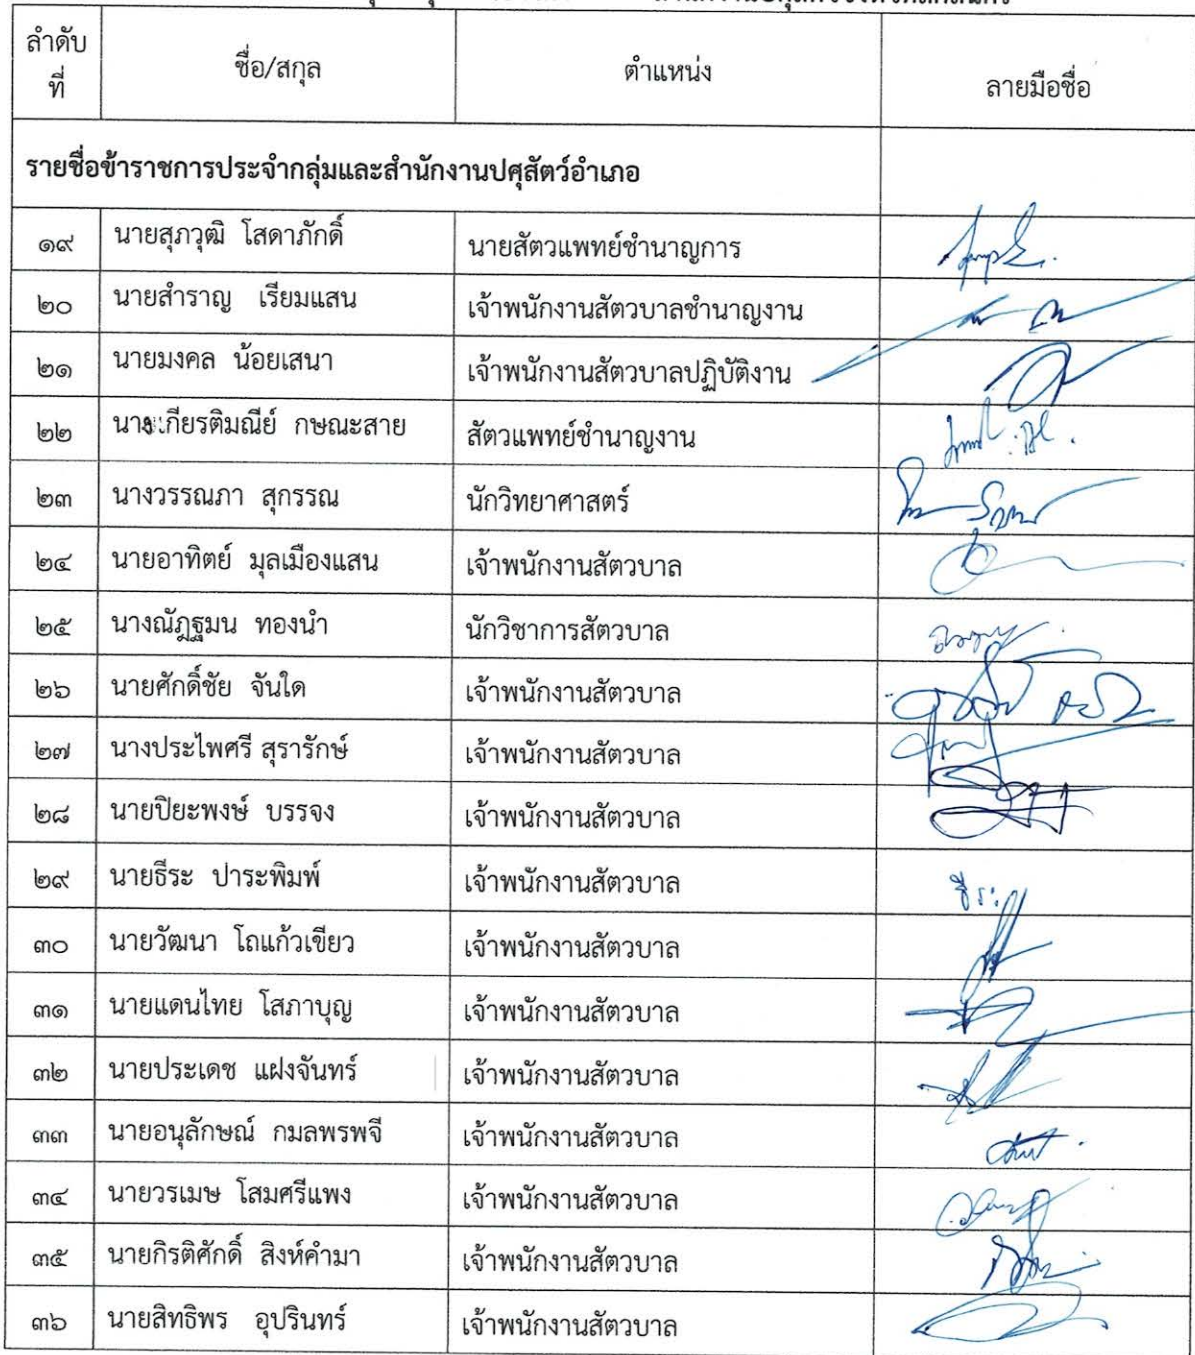 ลำดับ ชื่อ/สกุล ตำแหน่ง ลายมือชื่อ
ที่
รายชื่อข้าราชการประจำกลุ่มและสำนักงานปศุสัตว์อำเภอ
๑๙ นายสุภวุฒิ โสดาภักดิ์ นายสัตวแพทย์ชำนาญการ
๒๐ นายสำราญ เรียมแสน เจ้าพนักงานสัตวบาลชำนาญงาน
๒๑ นายมงคล น้อยเสนา เจ้าพนักงานสัตวบาลปฏิบัติงาน
๒๒ นางเกียรติมณีย์ กษณะสาย สัตวแพทย์ชำนาญงาน
๒๓ นางวรรณภา สุกรรณ นักวิทยาศาสตร์
๒๔ นายอาทิตย์ มุลเมืองแสน เจ้าพนักงานสัตวบาล
๒๕ นางณัฎฐมน ทองนำ นักวิชาการสัตวบาล
๒๖ นายศักดิ์ชัย จันใด เจ้าพนักงานสัตวบาล
๒๗ นางประไพศรี สุรารักษ์ เจ้าพนักงานสัตวบาล
๒๘ นายปิยะพงษ์ บรรจง เจ้าพนักงานสัตวบาล
๒๙ นายธีระ ปาระพิมพ์ เจ้าพนักงานสัตวบาล ธีระ
๓๐ นายวัฒนา โถแก้วเขียว เจ้าพนักงานสัตวบาล
๓๑ นายแดนไทย โสภาบุญ เจ้าพนักงานสัตวบาล
๓๒ นายประเดช แฝงจันทร์ เจ้าพนักงานสัตวบาล
๓๓ นายอนุลักษณ์ กมลพรพจี เจ้าพนักงานสัตวบาล
๓๔ นายวรเมษ โสมศรีแพง เจ้าพนักงานสัตวบาล
๓๕ นายกิรติศักดิ์ สิงห์คำมา เจ้าพนักงานสัตวบาล
๓๖ นายสิทธิพร อุปรินทร์ เจ้าพนักงานสัตวบาล